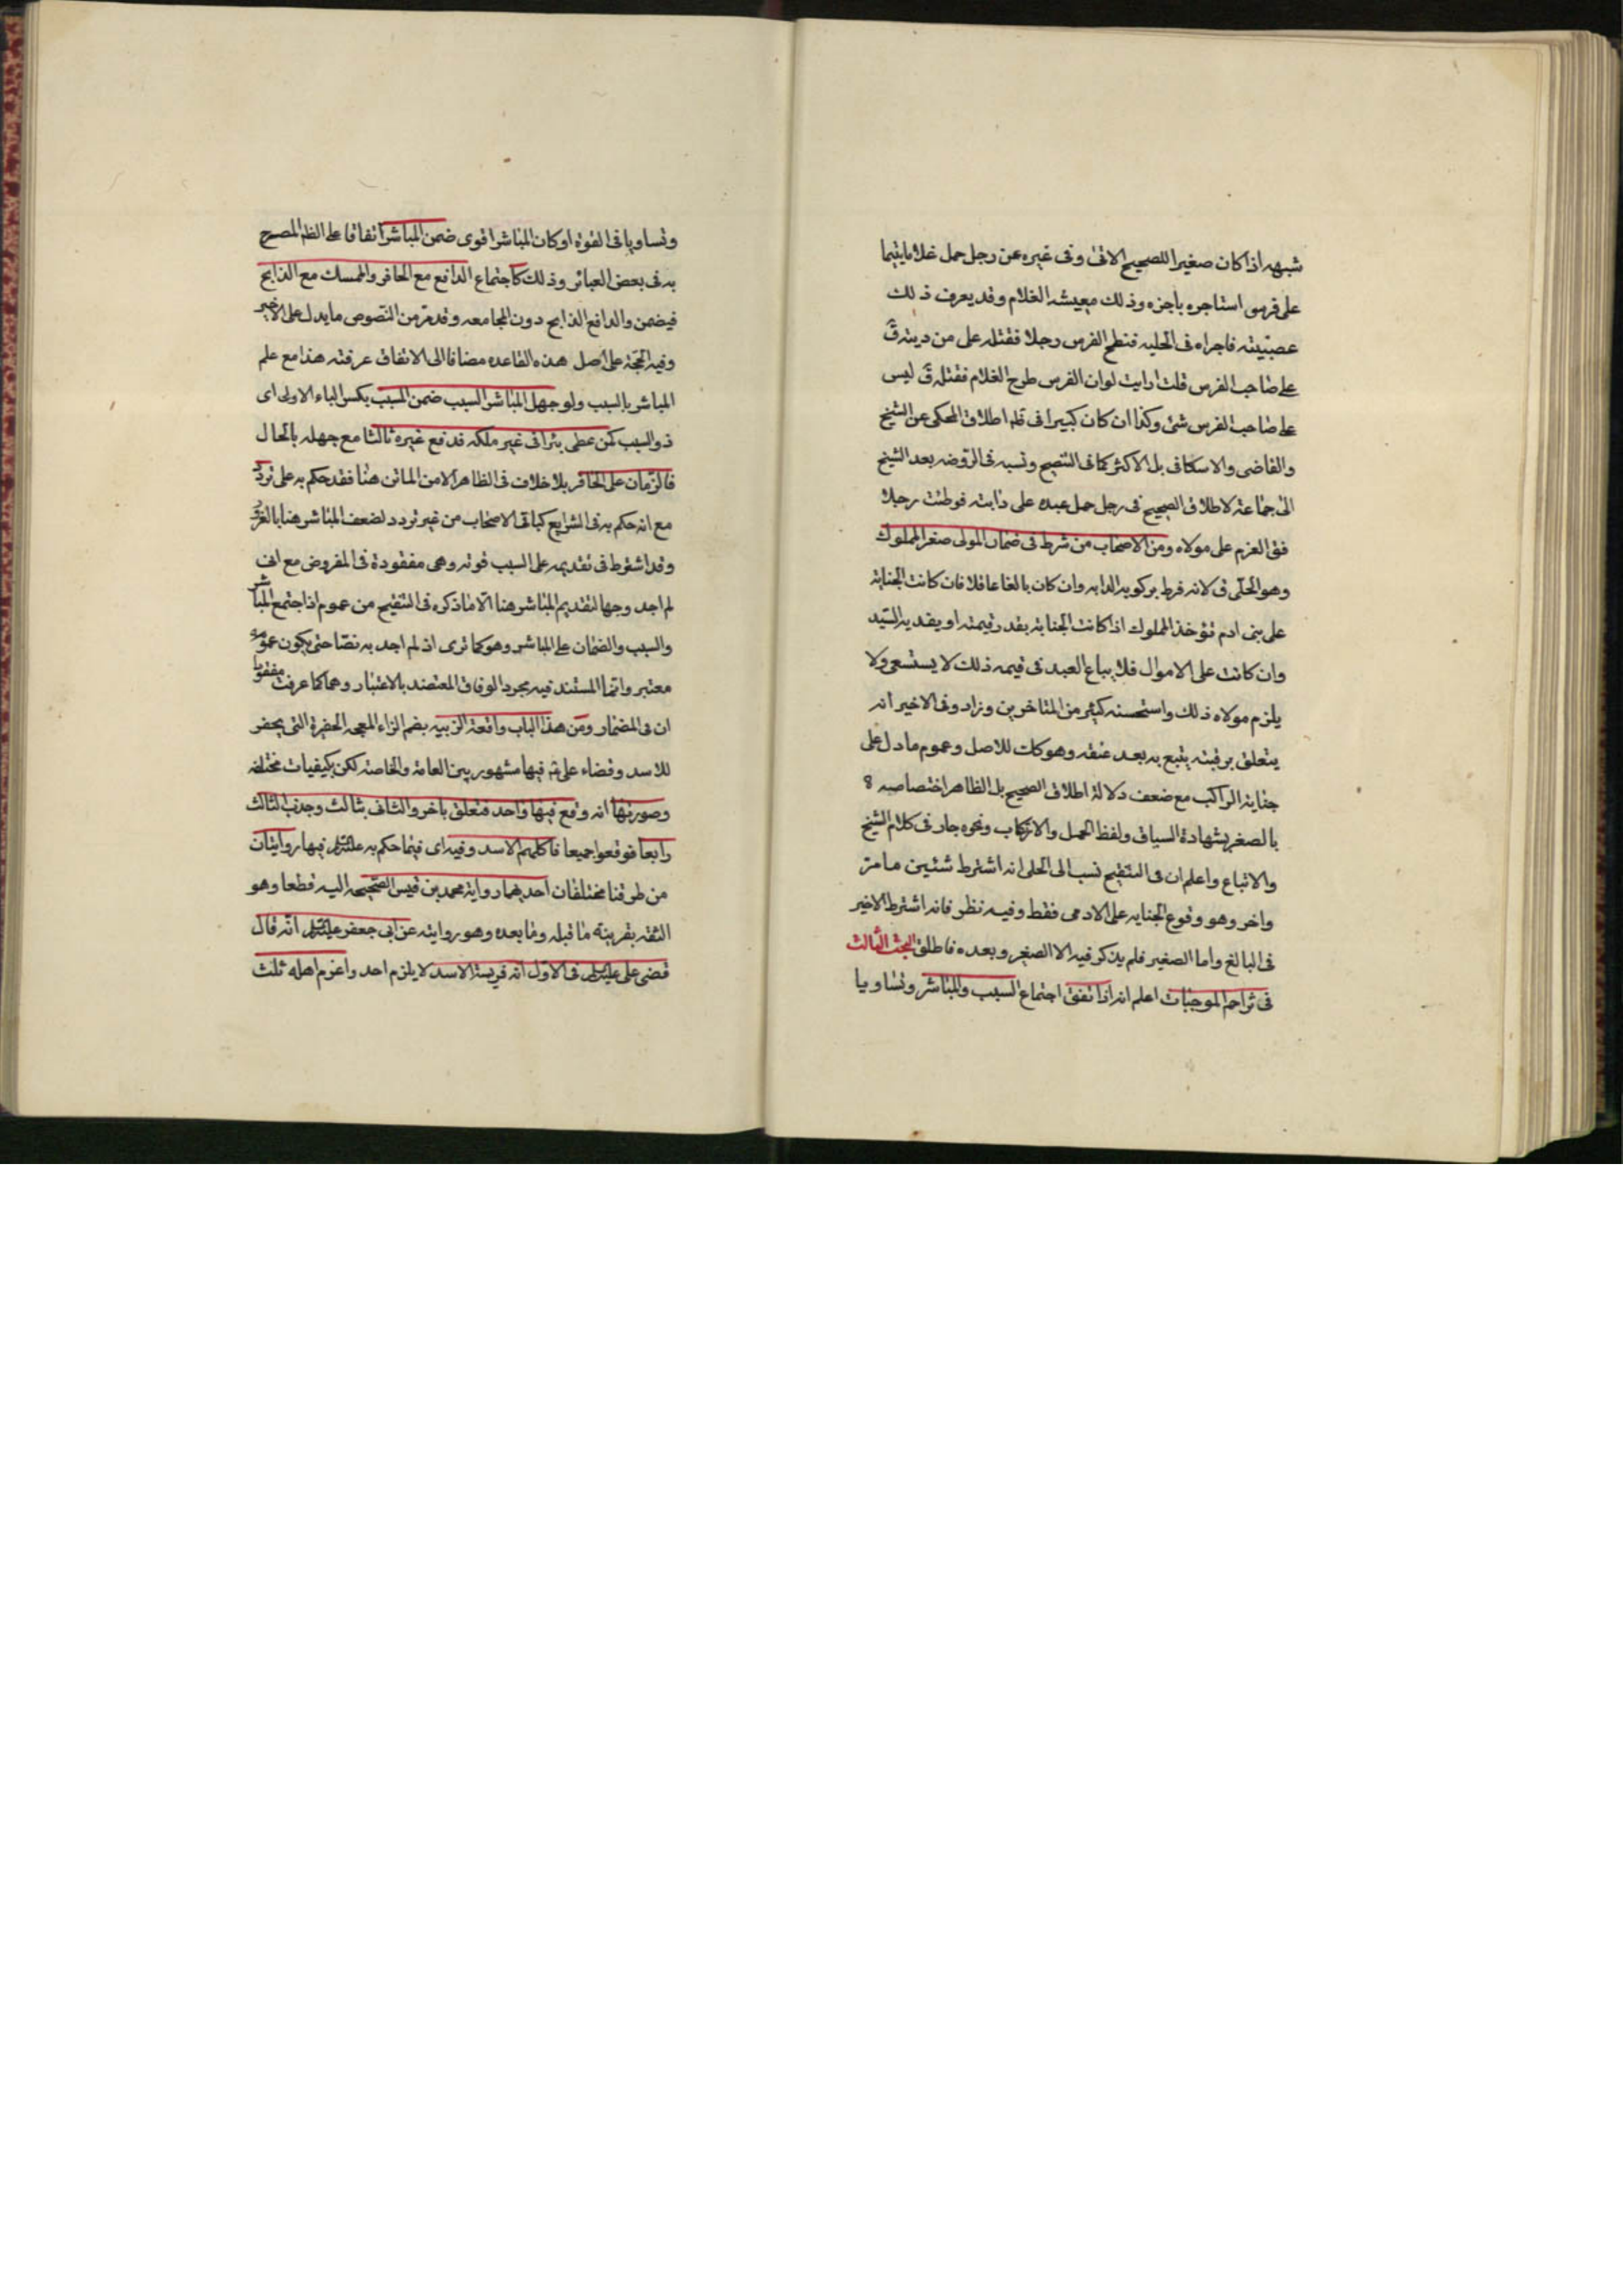 شبهه اذا كان صغيرا للصحيح الاتى وفى غيره عن رجل حمل غلاما يتيما
على فرس استاجره باجره وذلك معيشه الغلام وقد يعرف ذلك
عصبيته فاجراه فى الحلبه فنطح الفرس رجلا فقتله على من ديته ق
على صاحب الفرس قلت ارايت لو ان الفرس طرح الغلام فقتله ق ليس
على صاحب الفرس شئ وكذا ان كان كبيرا فى اطلاق المحكى عن الشيخ
والقاضى والاسكافى بل الاكثر كما فى التنقيح ونسبه فى الروضه بعد الشيخ
الى جماعة لاطلاق الصحيح فى رجل حمل عبده على دابته فوطئت رجلا
فق الغرم على مولاه ومن الاصحاب من شرط فى ضمان المولى صغر المملوك
وهو الحلى ق لانه فرط بركوبه الدابه وان كان بالغا عاقلا فان كانت الجناية
على بنى ادم تؤخذ المملوك اذا كانت الجناية بقدر قيمته او يفديه السيد
وان كانت على الاموال فلا يباع العبد فى قيمه ذلك لا يستسعى ولا
يلزم مولاه ذلك واستحسنه كثير من المتاخرين وزاد وفى الاخير انه
يتعلق برقبته يتبع به بعد عتقه وهو كك للاصل وعموم ما دل على
جناية الراكب مع ضعف دلالة اطلاق الصحيح بل الظاهر اختصاصه
بالصغر بشهادة السياق ولفظ الحمل والاركاب ونحوه جار فى كلام الشيخ
والاتباع واعلم ان فى التنقيح نسب الى الحلى انه اشترط شئين ما مر
واخر وهو وقوع الجنايه على الادمى فقط وفيه نظر فانه اشترط الاخير
فى البالغ واما الصغير فلم يذكر فيه الا الصغر وبعده فاطلق البحث الثالث
فى تزاحم الموجبات اعلم انه اذا اتفق اجتماع السبب والمباشر وتساويا
وتساويا فى القوة او كان المباشر اقوى ضمن المباشر اتفاقا على الظ المصرح
به فى بعض العبائر وذلك كاجتماع الدافع مع الحافر والممسك مع الذابح
فيضمن والدافع الذابح دون المجامعه وقد مر من النصوص ما يدل على الاخير
وفيه الحجة على اصل هذه القاعده مضافا الى الاتفاق عرفته هذا مع علم
المباشر بالسبب ولو جهل المباشر السبب ضمن المسبب بكسر الباء الاولى اى
ذو السبب كمن غطى بئرا فى غير ملكه فدفع غيره ثالثا مع جهله بالحال
فالزمان على الحافر بلا خلاف فى الظاهر الا من الماتن هنا فقد حكم به على تردد
مع انه حكم به فى الشرايع كباقى الاصحاب من غير تردد لضعف المباشر هنا بالغرور
وقد اشترط فى تقديمه على السبب قوته وهى مفقودة فى المفروض مع انى
لم اجد وجها لتقديم المباشر هنا الا ما ذكره فى التنقيح من عموم اذا اجتمع المباشر
والسبب والضمان على المباشر وهو كما ترى اذ لم اجد به نصا حتى يكون عمومه
معتبر وانما المستند فيه مجرد الوفاق المعتضد بالاعتبار وهما كما عرفت مفقودان
ان فى المضمار ومن هذا الباب واقعة الزبيه بضم الزاء المعجمه الحفرة التى يحفر
للاسد وقضاء على ع فيها مشهور بين العامة والخاصة لكن بكيفيات مختلفه
وصورتها انه وقع فيها واحد فتعلق باخر والثانى بثالث وجذب الثالث
رابعا فوقعوا جميعا فاكلهم الاسد وفيه اى فيما حكم به عليه السلام فيها روايتان
من طرقنا مختلفتان احدهما رواية محمد بن قيس الصحيحه اليه قطعا وهو
الثقه بقرينة ما قبله وما بعده وهو روايته عن ابى جعفر عليه السلام انه قال
قضى على عليه السلام فى الاول انه فريسة الاسد لا يلزم احد واغرم اهله ثلث